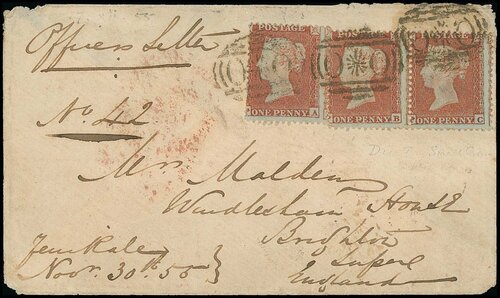 Officers Letter
No 42
POSTAGE
ONE PENNY
A
POSTAGE
ONE PENNY
B
POSTAGE
ONE PENNY
C
Mrs Malden
Windlesham House
Brighton
England
Jenikale
Novr. 30th 55